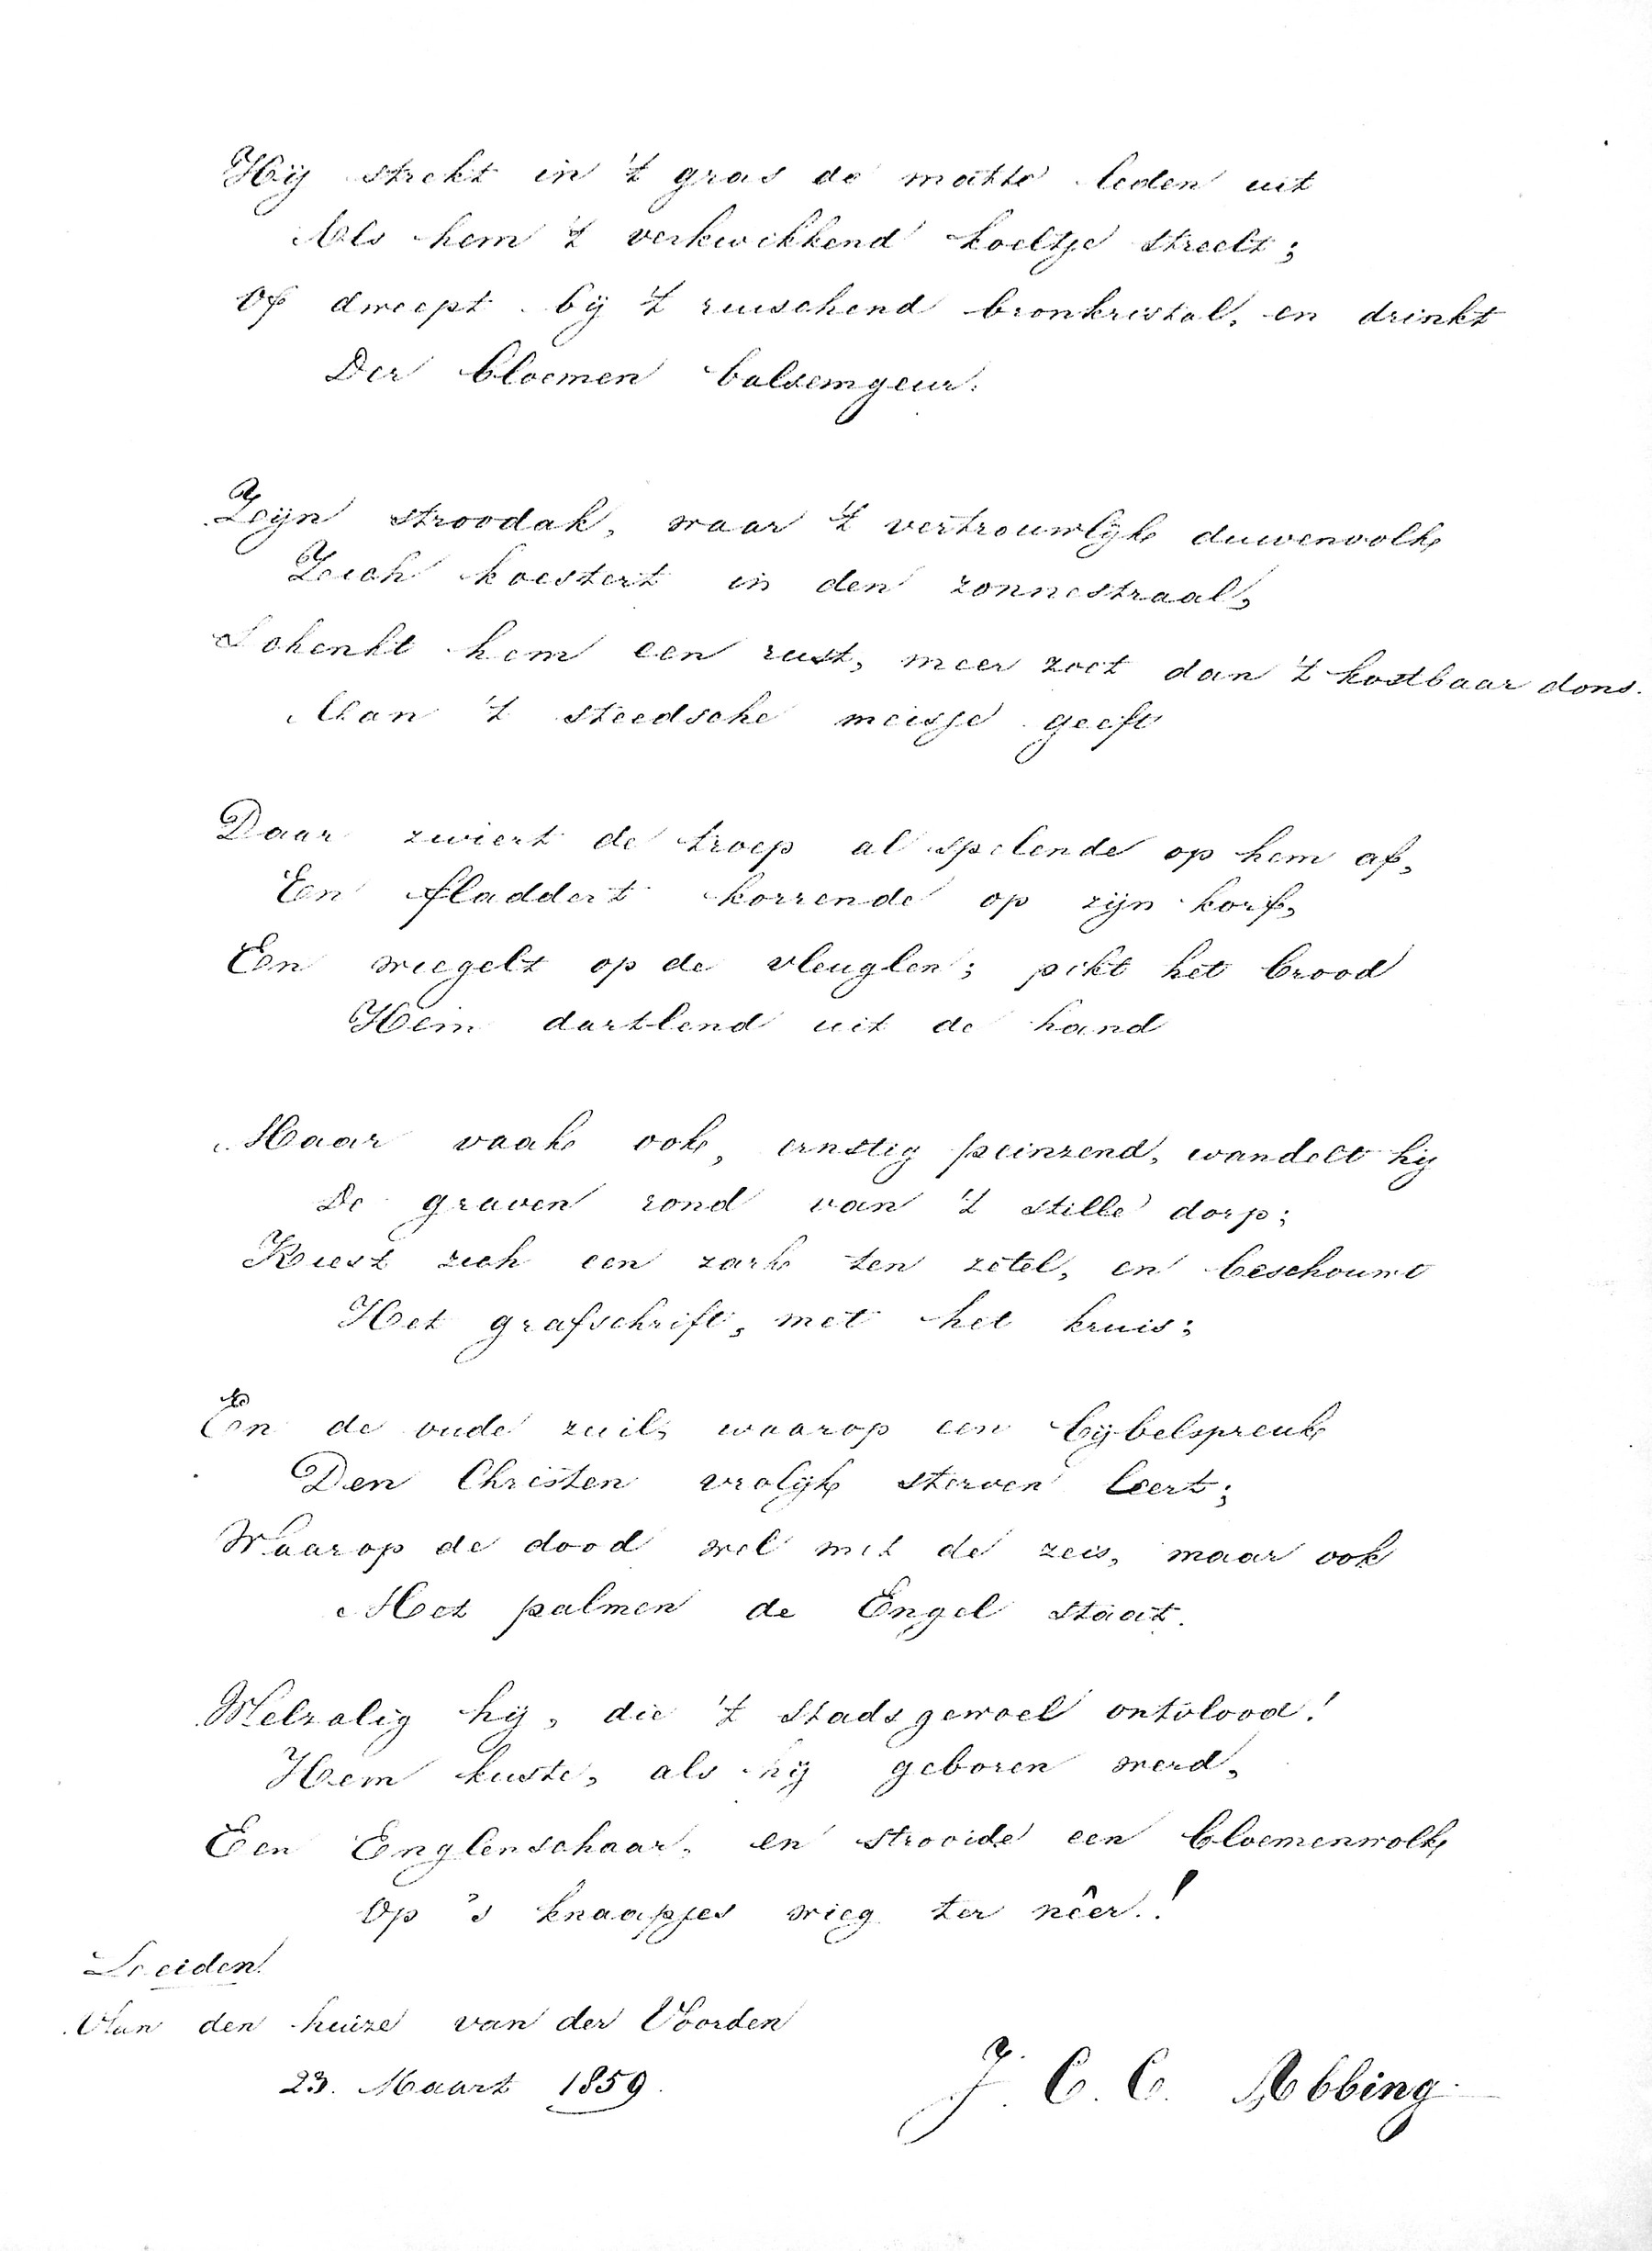 Hij strekt in 't gras de matte leden uit
Als hem 't verkwikkend koeltje streelt;
Of dweept bij 't ruischend bronkristal, en drinkt
Der bloemen balsemgeur.
Zijn stroodak, waar 't vertrouwlijk duivenvolk
Zich koestert in den zonnestraal,
Schenkt hem een rust, meer zoet dan 't kostbaar dons
Aan 't steedsche meisje geeft
Daar zwiert de troep al spelende op hem af,
En fladdert korrende op zijn korf,
En wiegelt op de vleuglen; pikt het brood
Hem dartlend uit de hand
Maar vaak ook, ernstig peinzend, wandelt hij
De graven rond van 't stille dorp;
Kiest zich een zark ten zetel, en beschouwt
Het grafschrift, met het kruis;
En de oude zuil, waarop een bijbelspreuk
Den Christen vrolijk sterven leert;
Waarop de dood wel met de zeis, maar ook
Met palmen de Engel staat.
Welzalig hij, die 't stadsgewoel ontvlood!
Hem kuste, als hij geboren werd,
Een Englenschaar, en strooide een bloemenwolk
Op 's knaapjes wieg ter nêer!
Leiden
Aan den huize van der Voorden
23. Maart 1859.
J. C. C. Abbing